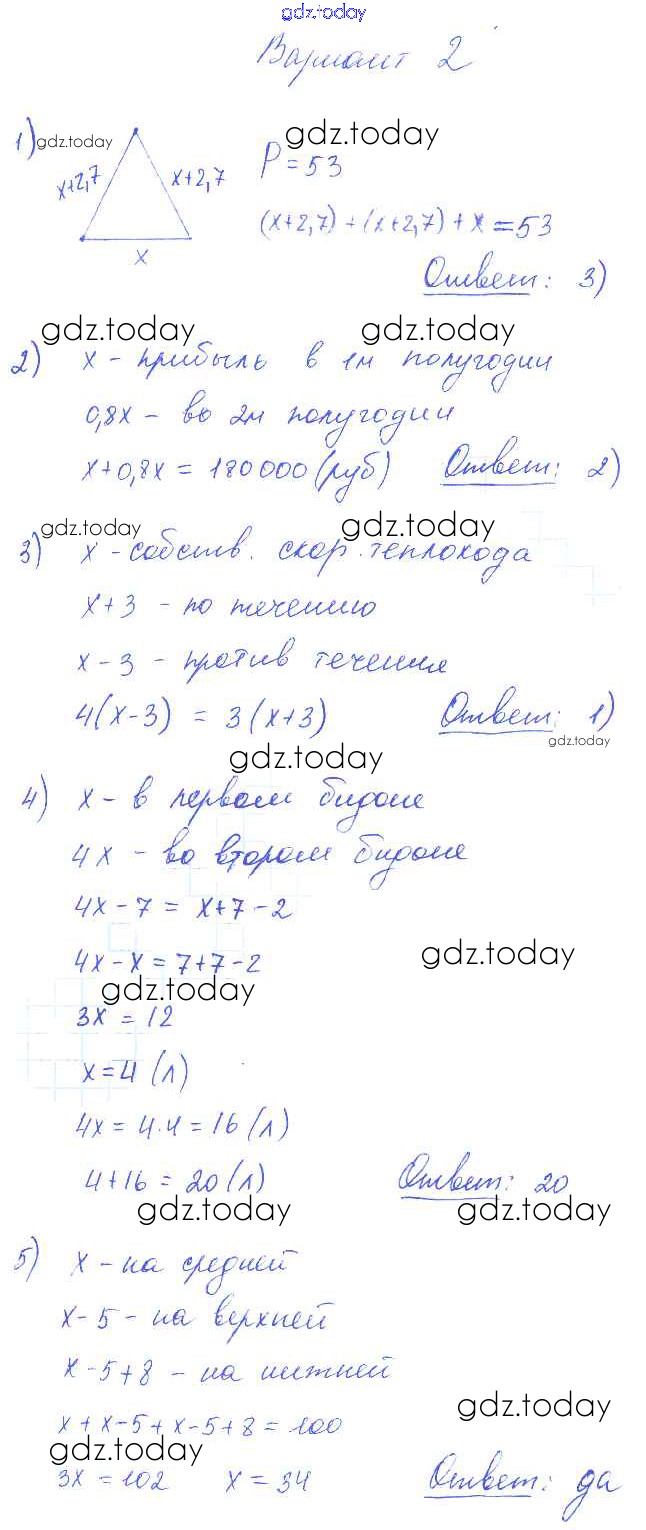 gdz.today
Вариант 2
1) gdz.today
gdz.today
x+2,7
x+2,7
x
P = 53
(x+2,7) + (x+2,7) + x = 53
Ответ: 3)
gdz.today gdz.today
2) x - прибыль в 1м полугодии
0,8x - во 2м полугодии
x+0,8x = 180000 (руб) Ответ: 2)
gdz.today gdz.today
3) x - собств. скор. теплохода
x+3 - по течению
x-3 - против течения
4(x-3) = 3(x+3) Ответ: 1)
gdz.today
gdz.today
4) x - в первом бидоне
4x - во втором бидоне
4x-7 = x+7-2
4x-x = 7+7-2
gdz.today
gdz.today
3x = 12
x=4 (л)
4x = 4·4 = 16 (л)
4+16 = 20 (л) Ответ: 20
gdz.today gdz.today
5) x - на средней
x-5 - на верхней
x-5+8 - на нижней
gdz.today
x+x-5+x-5+8 = 100
gdz.today
3x = 102 x = 34 Ответ: да